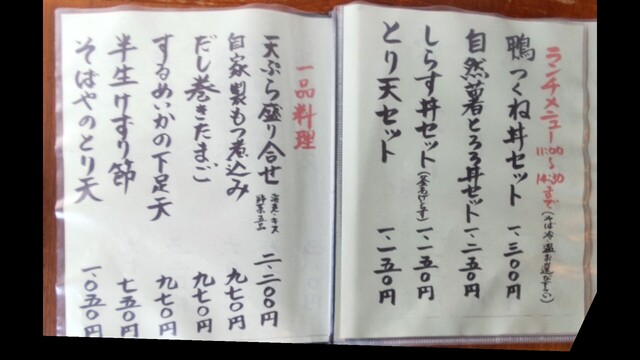 ランチメニュー 11:00〜14:30まで
(そば冷温お選び下さい)
鴨つくね丼セット 一、三〇〇円
自然薯とろろ丼セット 一、二五〇円
しらす丼セット(釜あげしらす) 一、一五〇円
とり天セット 一、二五〇円
一品料理
天ぷら盛り合せ 海老・キス 野菜五品 二、二〇〇円
自家製もつ煮込み 九七〇円
だし巻きたまご 九七〇円
するめいかの下足天 九七〇円
半生けずり節 七五〇円
そばやのとり天 一、〇五〇円